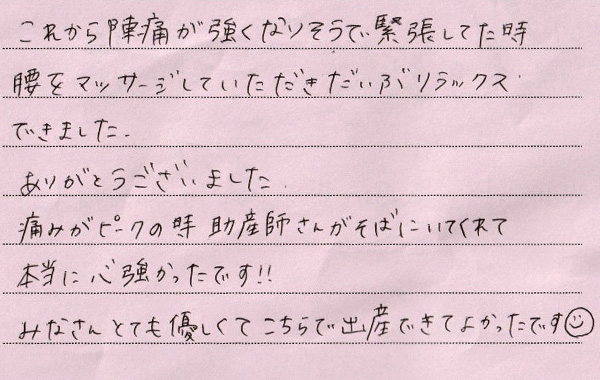 これから陣痛が強くなりそうで緊張してた時
腰をマッサージしていただきだいぶリラックス
できました.
ありがとうございました.
痛みがピークの時 助産師さんがそばにいてくれて
本当に心強かったです!!
みなさんとても優しくてこちらで出産できてよかったです☺